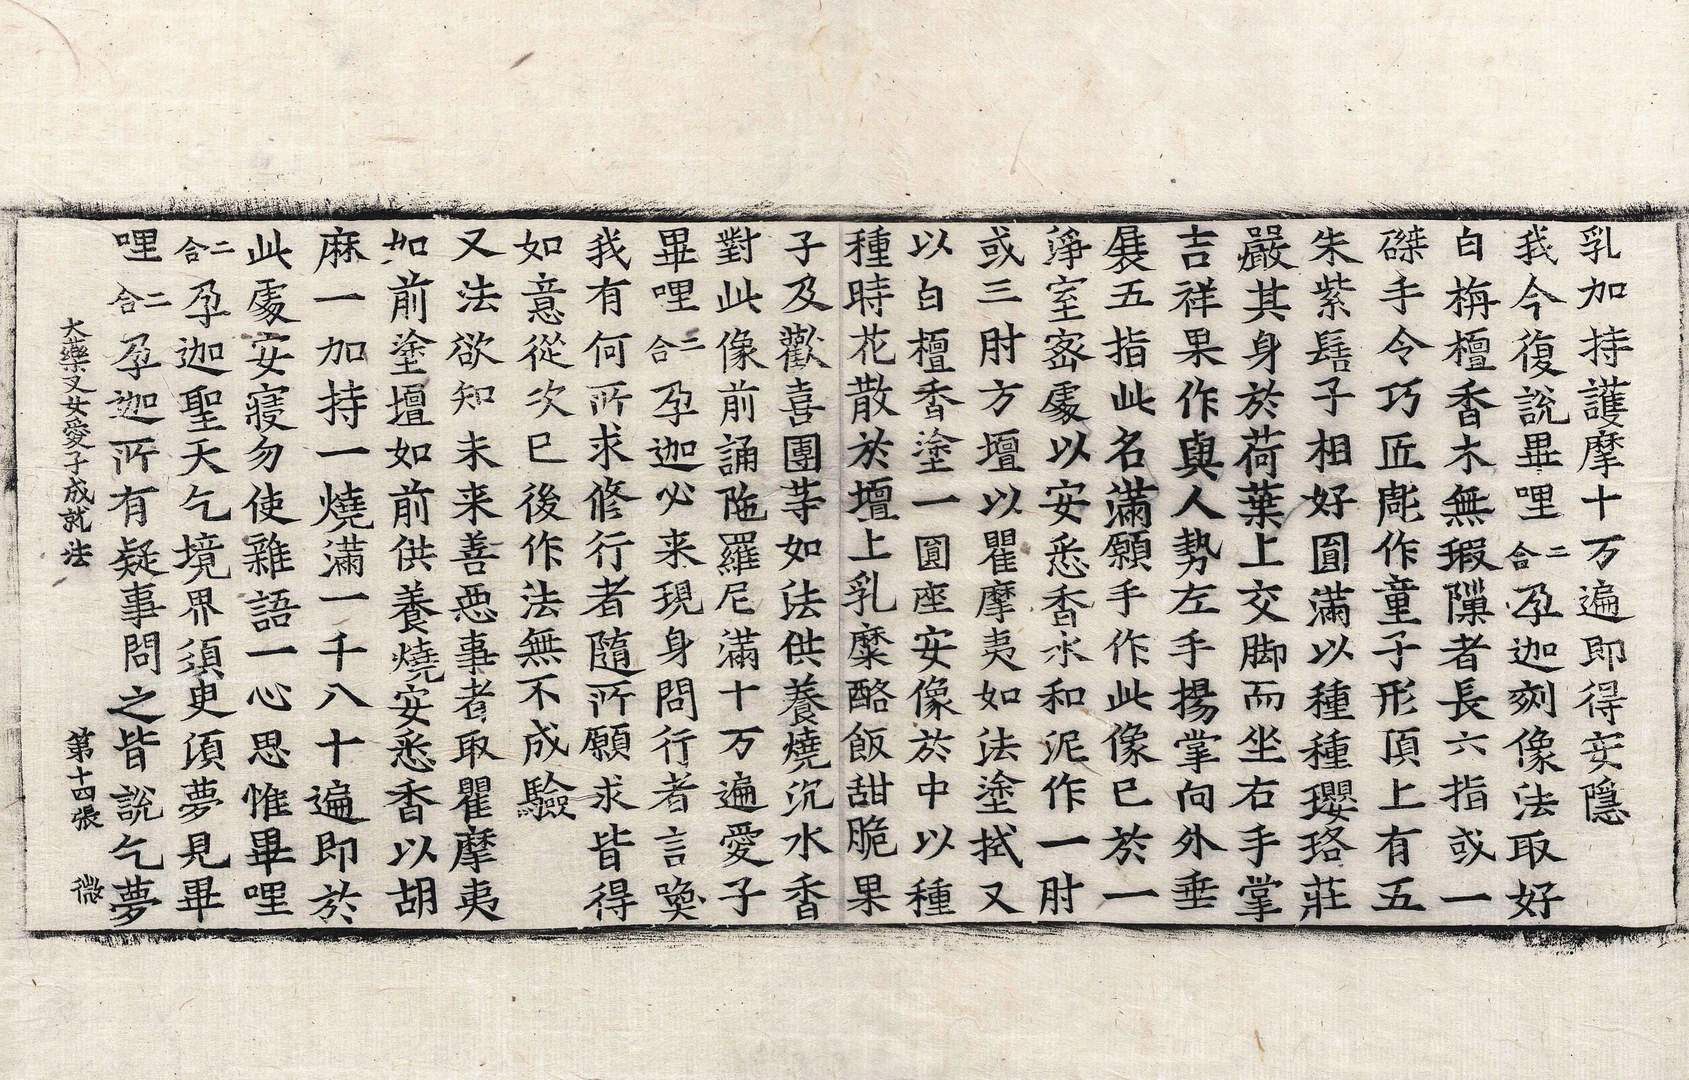 乳加持護摩十万遍即得安隱
我今復說畢哩二合孕迦剋像法取好
白栴檀香木無瑕隟者長六指或一
磔手令巧匠彫作童子形頂上有五
朱紫髻子相好圓滿以種種瓔珞莊
嚴其身於荷葉上交脚而坐右手掌
吉祥果作與人勢左手揚掌向外垂
展五指此名滿願手作此像已於一
淨室密處以安悉香水和泥作一肘
或三肘方壇以瞿摩夷如法塗拭又
以白檀香塗一圓座安像於中以種
種時花散於壇上乳糜酪飯甜脆果
子及歡喜團等如法供養燒沉水香
對此像前誦陁羅尼滿十万遍愛子
畢哩二合孕迦必来現身問行者言喚
我有何所求修行者隨所願求皆得
如意從次已後作法無不成驗
又法欲知未来善惡事者取瞿摩夷
如前塗壇如前供養燒安悉香以胡
麻一加持一燒滿一千八十遍即於
此處安寢勿使雜語一心思惟畢哩
二合孕迦聖天乞境界須臾須夢見畢
哩二合孕迦所有疑事問之皆說乞夢
大藥叉女愛子成就法 第十四張 微